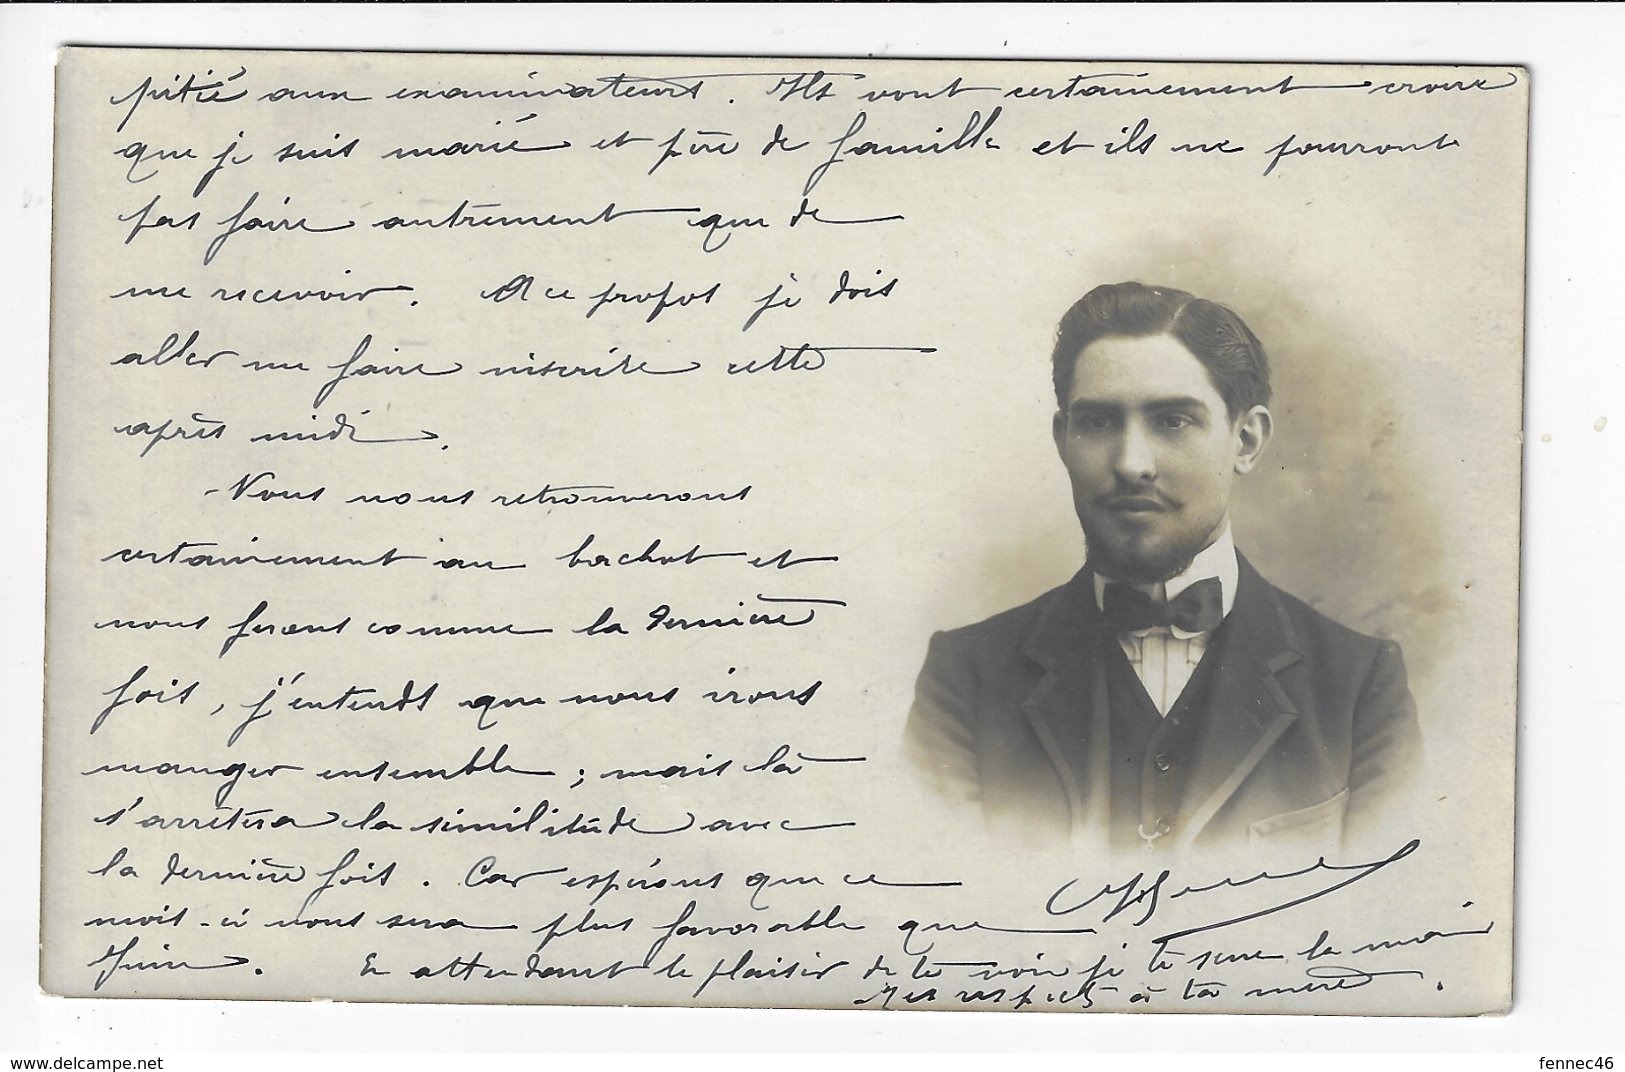 pitié aux examinateurs. Ils vont certainement croire
que je suis marié et père de famille et ils ne pourront
pas faire autrement que de
me recevoir. A ce propos je dois
aller me faire inscrire cette
après midi.
Nous nous retrouverons
certainement au bachot et
nous ferons comme la dernière
fois, j'entends que nous irons
manger ensemble ; mais là
s'arrêtera la similitude avec
la dernière fois. Car espérons que ce
mois-ci nous sera plus favorable que
Juin. En attendant le plaisir de te voir je te serre la main
Mes respects à ta mère.
www.delcampe.net
fennec46